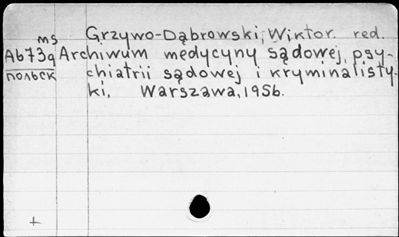 ms Grzywo-Dąbrowski, Wiktor. red.
Ab73g Archiwum medycyny sądowej, psy-
польск chiatrii sądowej i kryminalisty-
ki. Warszawa, 1956.
+